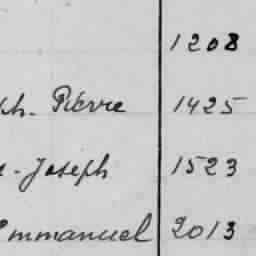 1208
ph. Pierre 1425
e-Joseph 1523
Emmanuel 2013